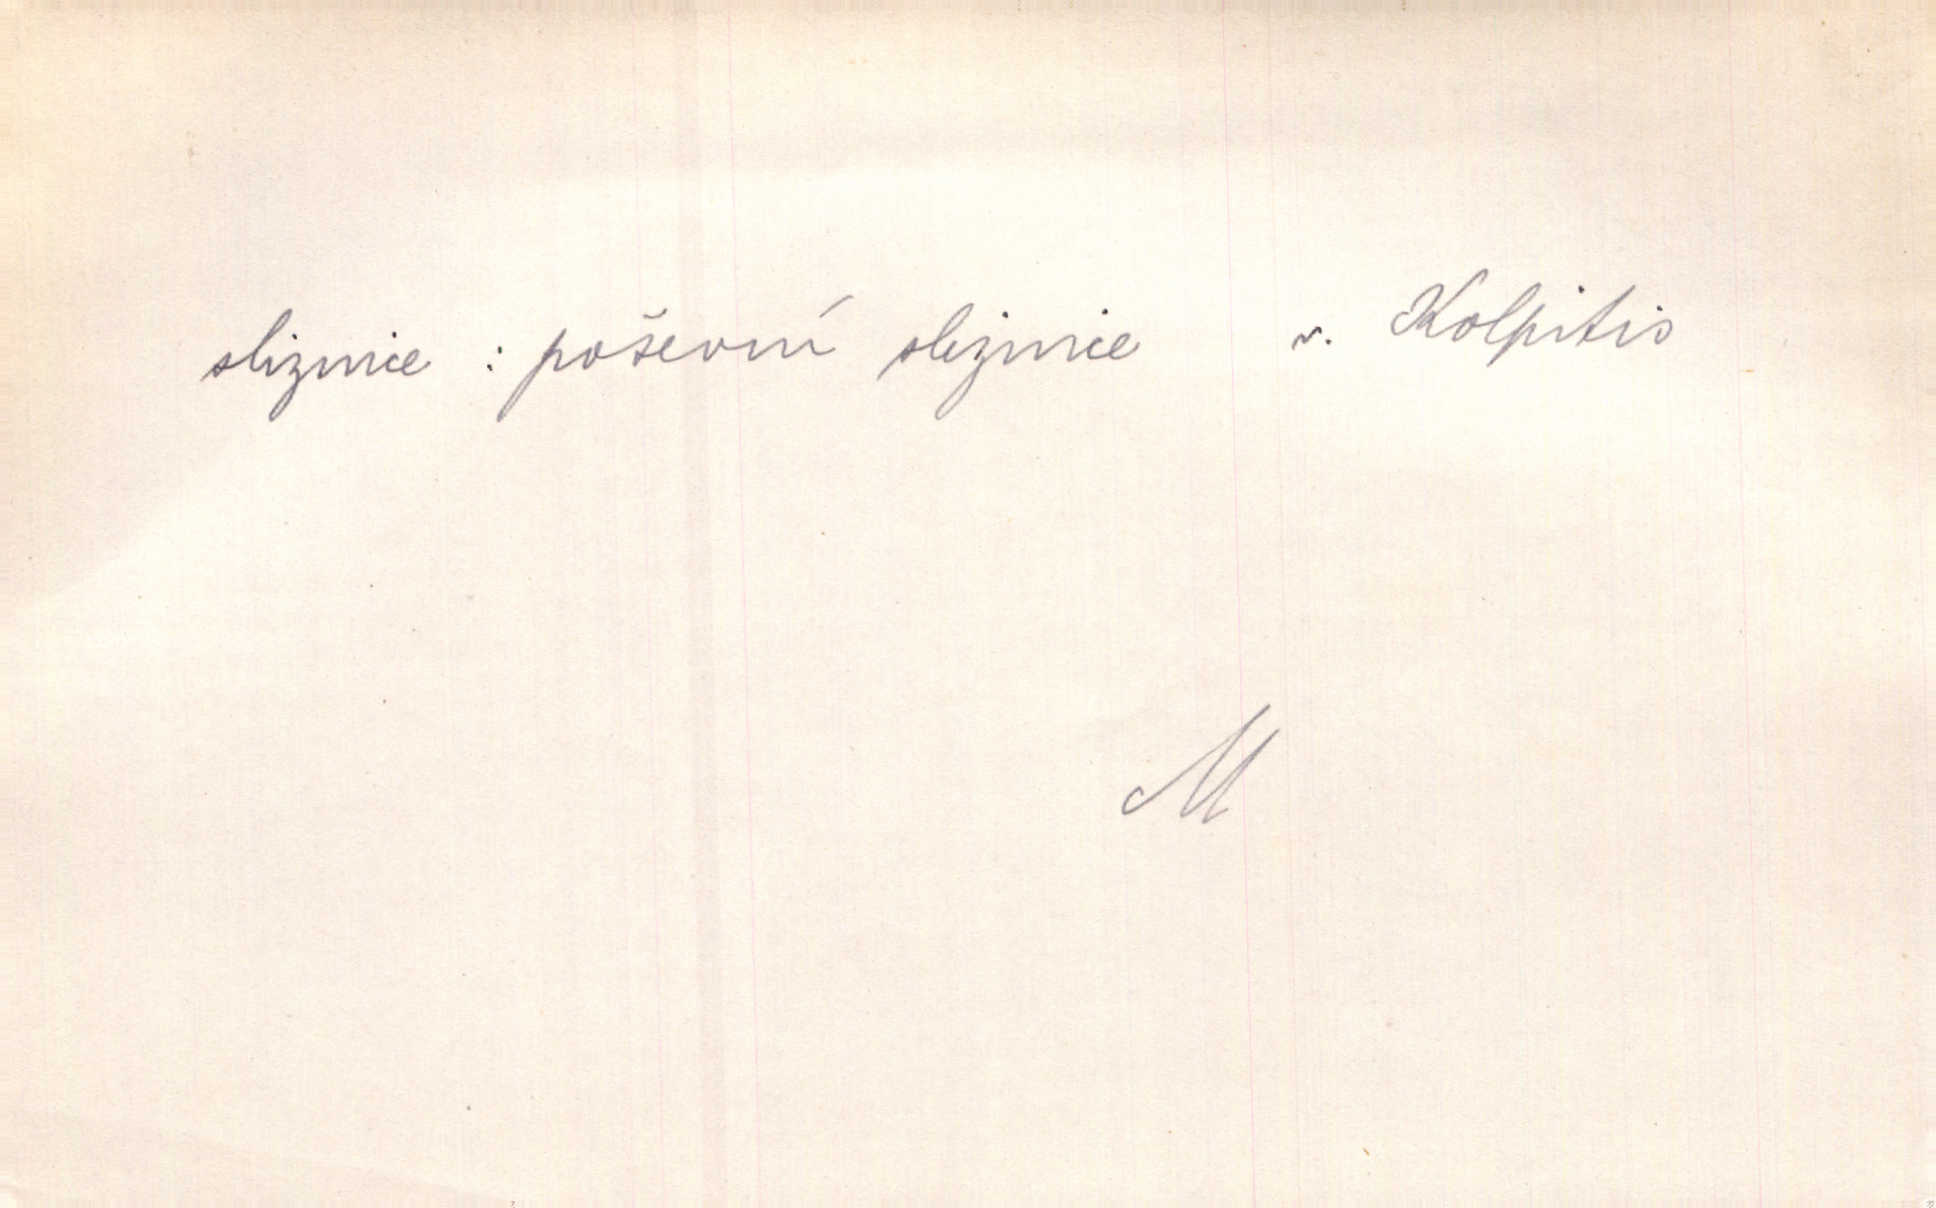 sliznice : poševní sliznice v. Kolpitis
M